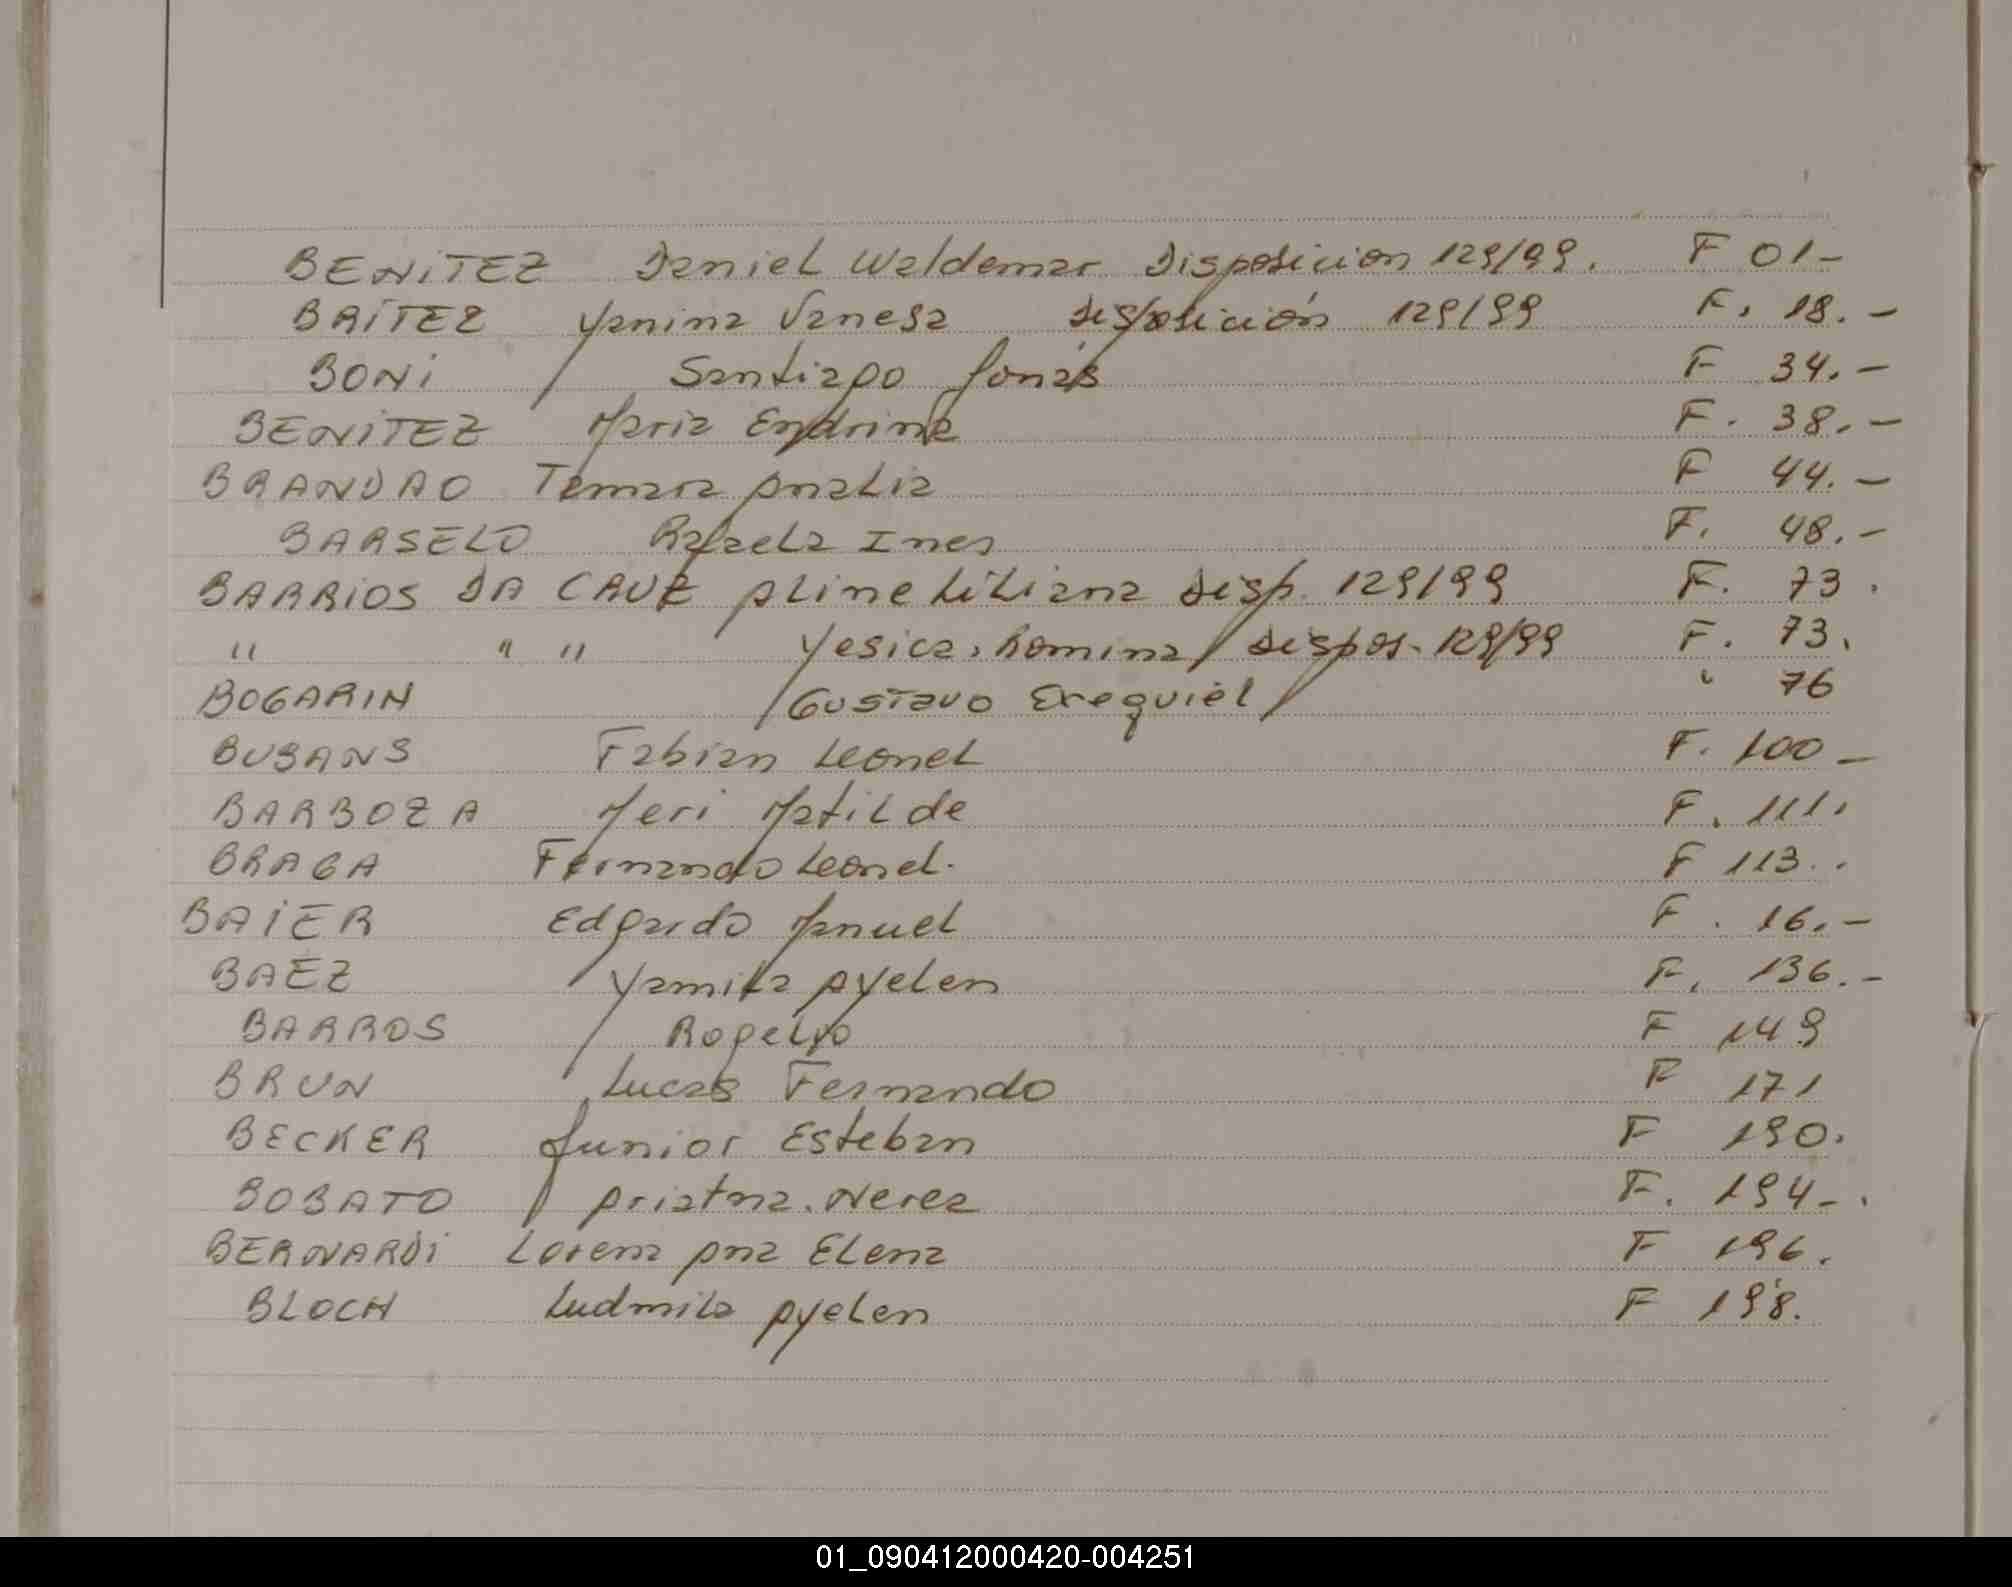 BENITEZ Daniel Waldemar Disposicion 129/99. F 01-
BAÍTEZ Yanina Vanesa disposición 129/99 F. 18.-
BONI Santiago Jonás F 34.-
BENITEZ Maria Endrina F. 38.-
BRANDAO Tamara Analia F 44.-
BARSELO Rafaela Ines F. 48.-
BARRIOS DA CRUZ Aline Liliana disp. 129/99 F. 73.
" " " Yesica, Romina dispos. 129/99 F. 73.
BOGARIN Gustavo Exequiel " 76
BUBANS Fabian Leonel F. 100-
BARBOZA Meri Matilde F. 111.
BRAGA Fernando Leonel. F 113..
BAIER Edgardo Manuel F. 16.-
BAEZ Yamila Ayelen F. 136.-
BARROS Rogelio F 149
BRUN Lucas Fernando F 171
BECKER Junior Esteban F 190.
BOBATO Nerea F. 194-.
BERNARDI Lorena Ana Elena F 196.
BLOCH Ludmila Ayelen F 198.
01_090412000420-004251